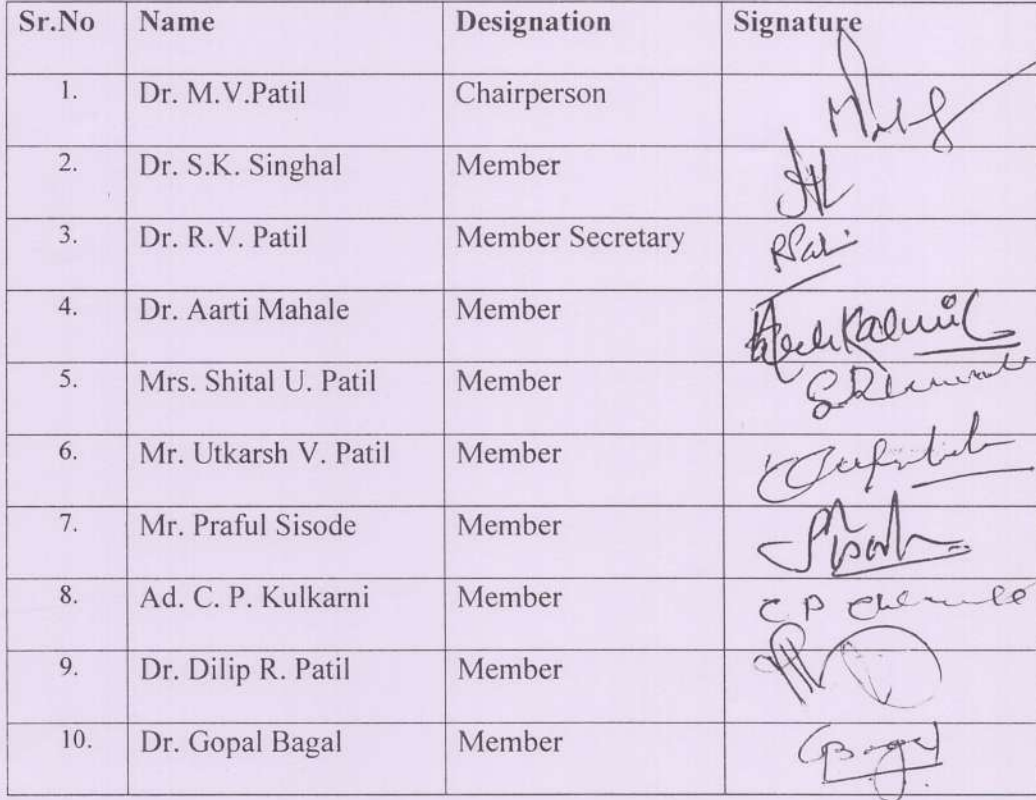 Sr.No Name Designation Signature
1. Dr. M.V.Patil Chairperson
2. Dr. S.K. Singhal Member
3. Dr. R.V. Patil Member Secretary
4. Dr. Aarti Mahale Member
5. Mrs. Shital U. Patil Member
6. Mr. Utkarsh V. Patil Member
7. Mr. Praful Sisode Member
8. Ad. C. P. Kulkarni Member C P
9. Dr. Dilip R. Patil Member
10. Dr. Gopal Bagal Member